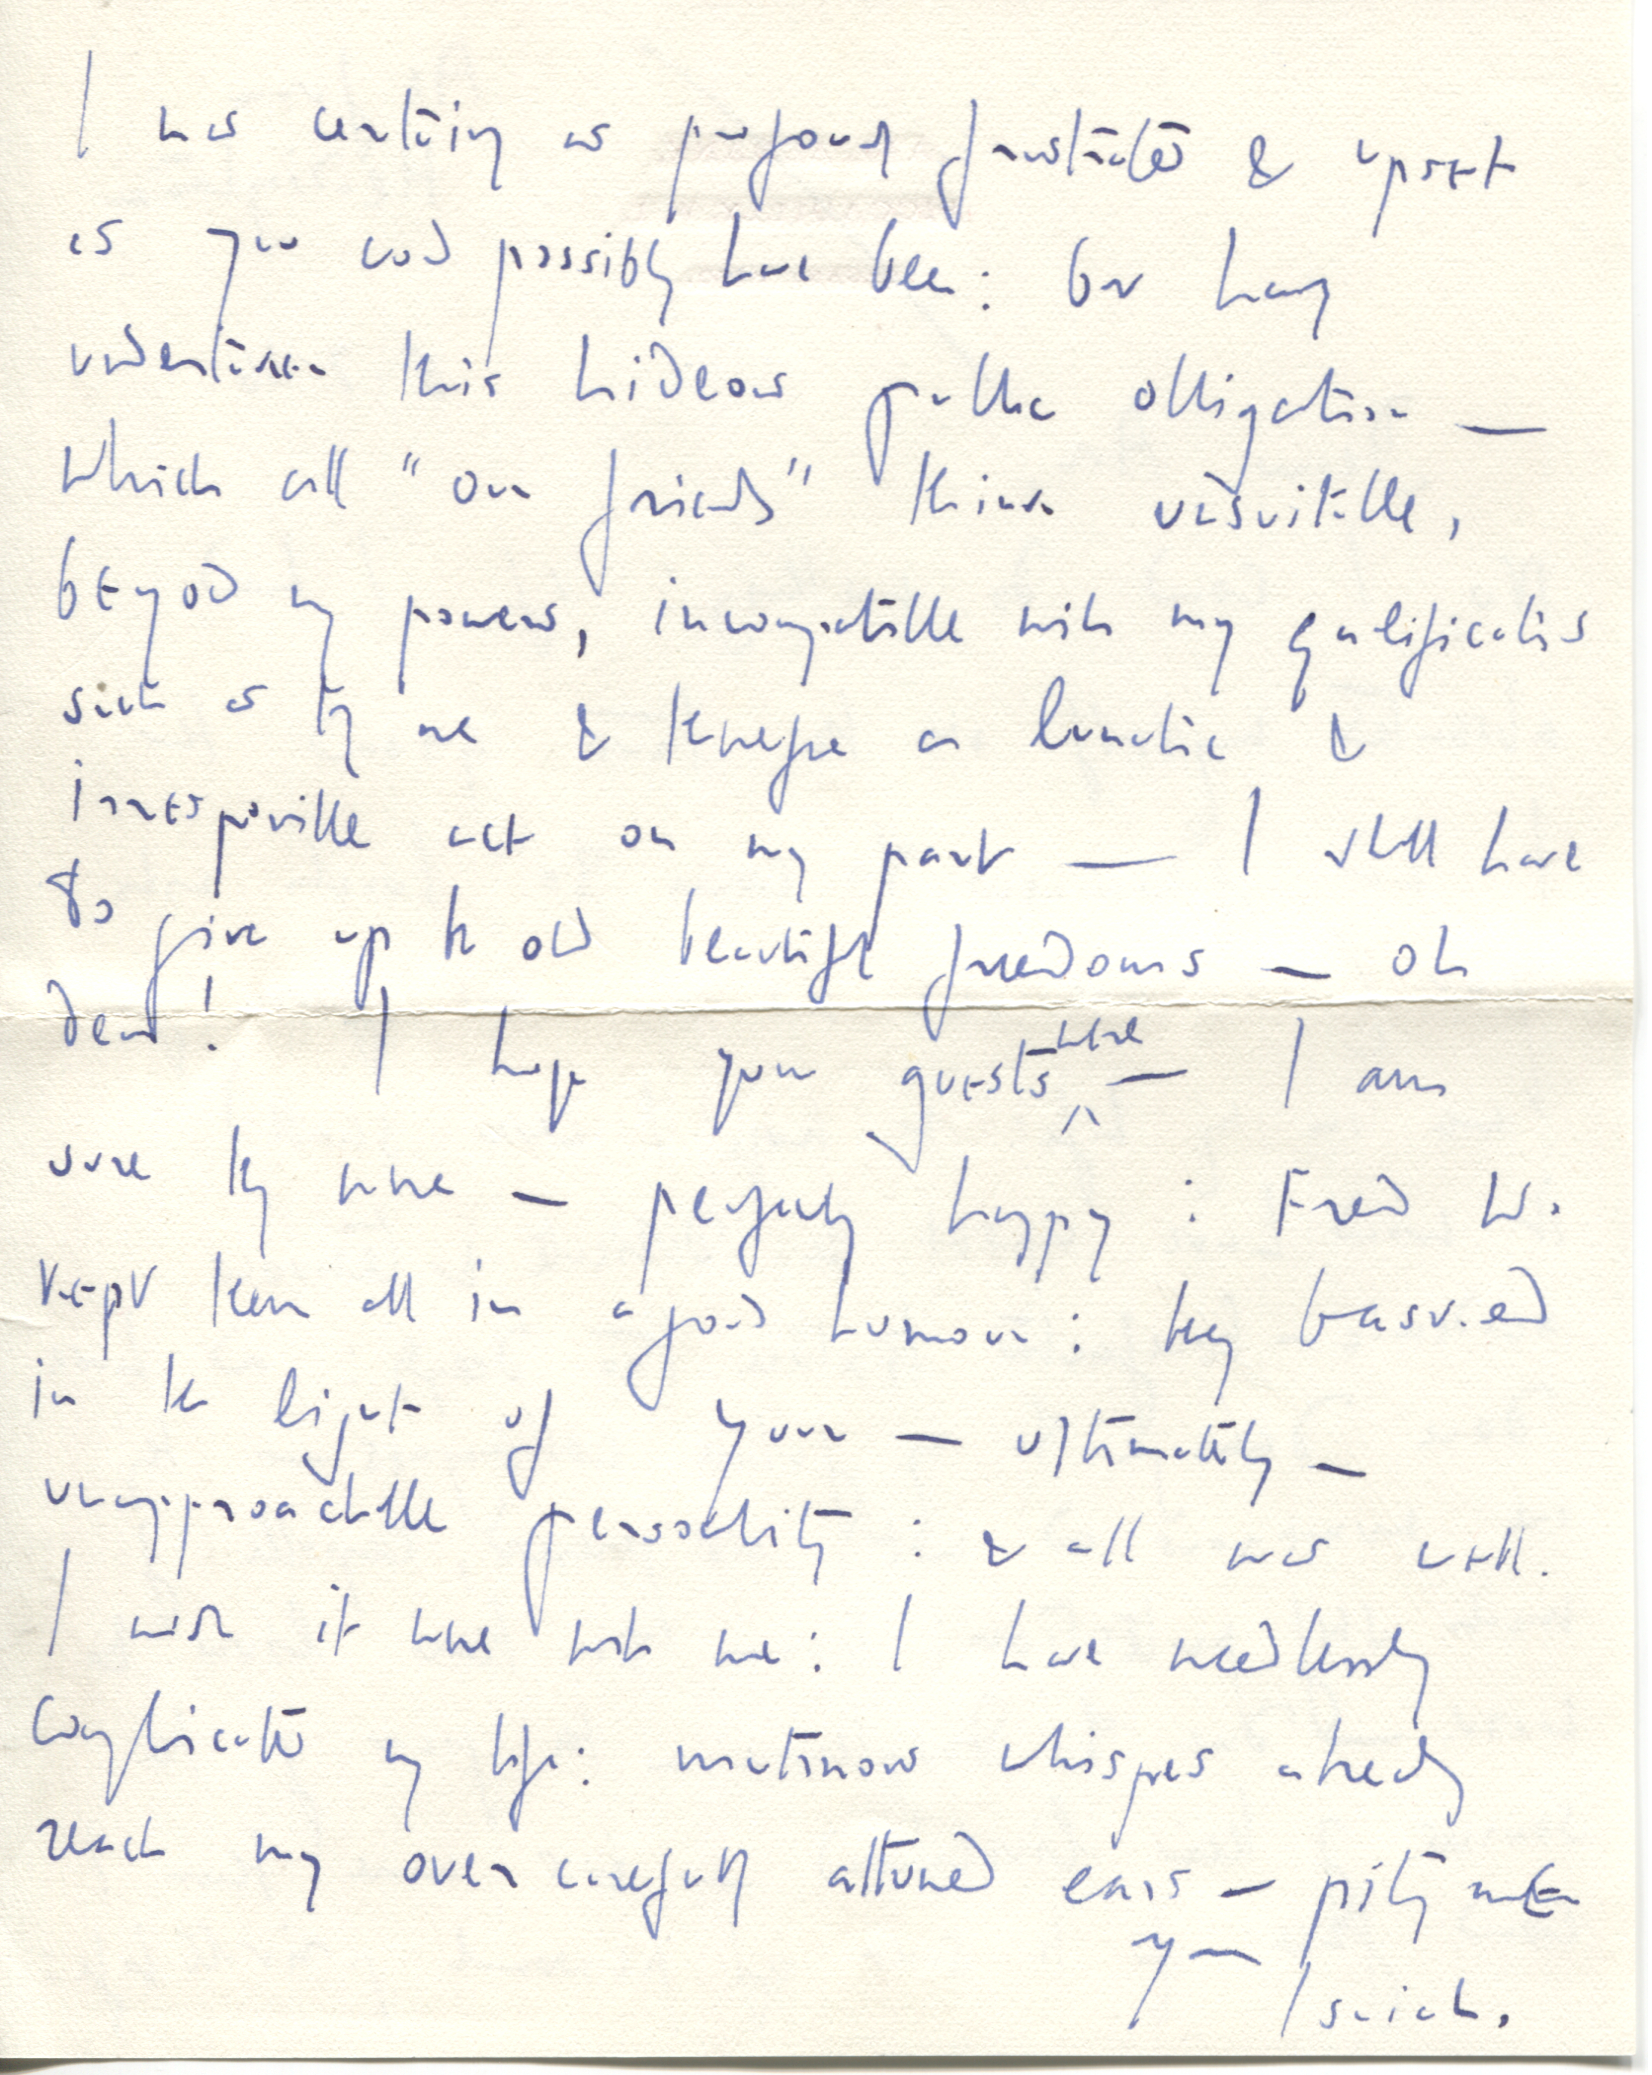 I was certainly as profoundly frustrated & upset
as you could possibly have been: but having
undertaken this hideous public obligation —
which all "our friends" think unsuitable,
beyond my powers, incompatible with my qualifications
such as they are & therefore a lunatic &
irresponsible act on my part — I shall have
to give up the old beautiful freedoms — oh
dear! I hope your guests were — I am
sure they were — perfectly happy: Fred W.
kept them all in a good humour: they basked
in the light of your — ultimately —
unapproachable personality: & all was well.
I wish it were with me: I have needlessly
complicated my life: mutinous whispers already
reach my over carefully attuned ears — pity me
yrs
Isaiah.